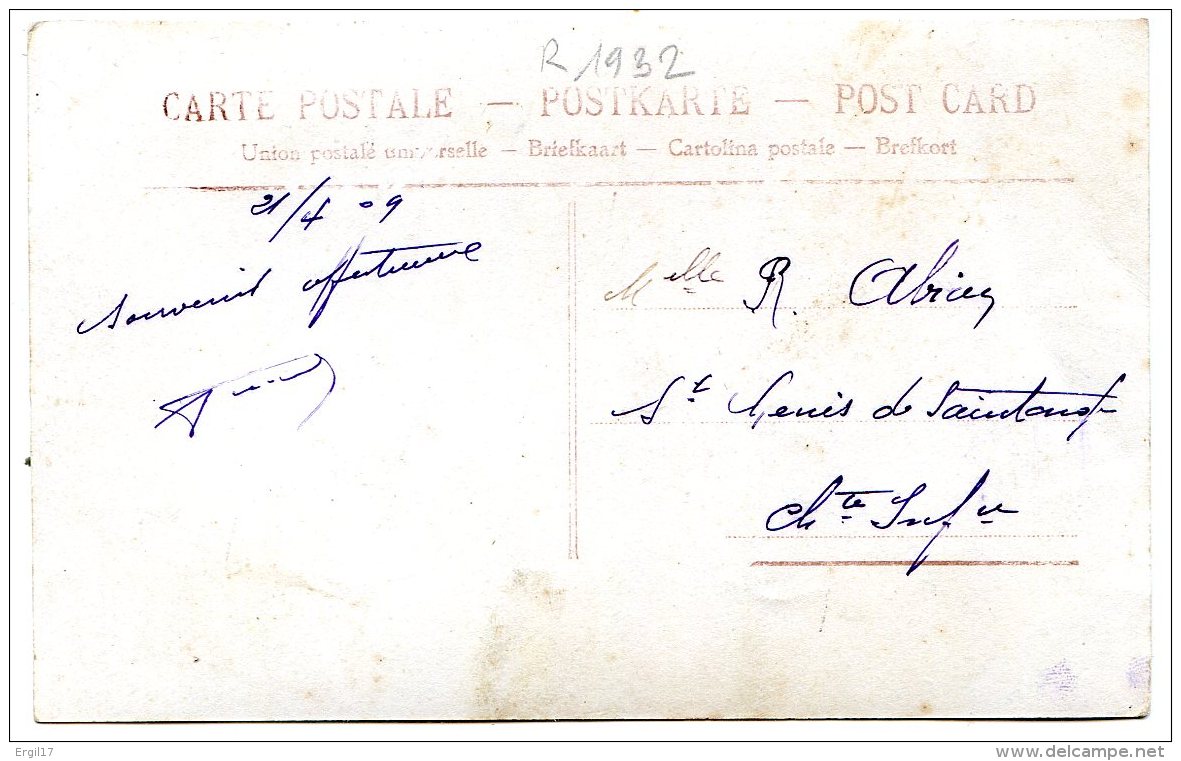 R 1932
CARTE POSTALE — POSTKARTE — POST CARD
Union postale universelle — Briefkaart — Cartolina postale — Brefkort
21/4 09
Souvenir affectueux
Mlle R. Abricy
St Genis de Saintonge
Chte Infre
Ergil17
www.delcampe.net